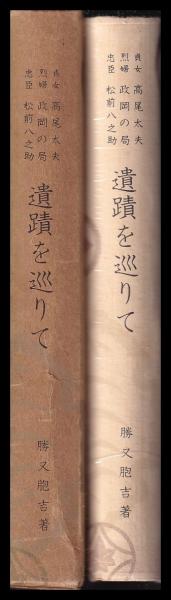 貞女 高尾太夫
烈婦 政岡の局
忠臣 松前八之助
遺蹟を巡りて
勝又胞吉著
貞女 高尾太夫
烈婦 政岡の局
忠臣 松前八之助
遺蹟を巡りて
勝又胞吉著